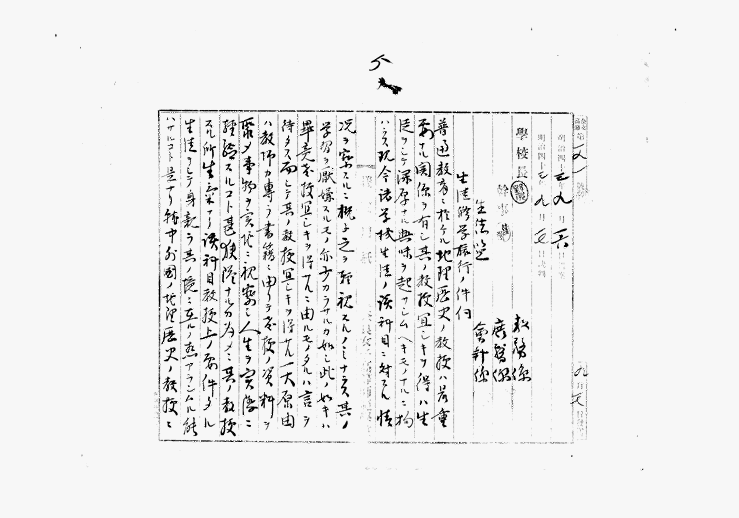 明治四十三年九月六日
明治四十三年九月五日
學校長
生徒修学旅行ノ件伺
教務係
庶務係
會計係
普通教育ニ於ケル地理歴史ノ教授ハ最重
要ナル関係ヲ有シ其ノ教授宜シキヲ得ハ生
徒ヲシテ深厚ナル興味ヲ起サシムヘキモノナルニ拘
ハラス現今諸学校生徒ノ該科目ニ対スル情
況ヲ察スルニ概子之ヲ軽視スルノミナラス其ノ
学習ヲ厭嫌スルモノ亦少カラサルカ如シ此ノ如キハ
畢竟教授宜シキヲ得サルニ由ルモノタルハ言ヲ
待タス而シテ其ノ教授宜シキヲ得サル一大原由
ハ教師カ専ラ書籍ニ由リテ教授ノ資料ヲ
聚メ事物ヲ実地ニ視察シ人生ヲ実際ニ
経験スルコト甚狭隘ナルカ為メニ其ノ教授
ノ生氣ナ
該科目教授上ノ要件タル
生徒ヲシテ身親ラ其ノ境ニ在ルノ感アラシムル能
ハサルコト是ナリ就中外國ノ地理歴史ノ教授ニ